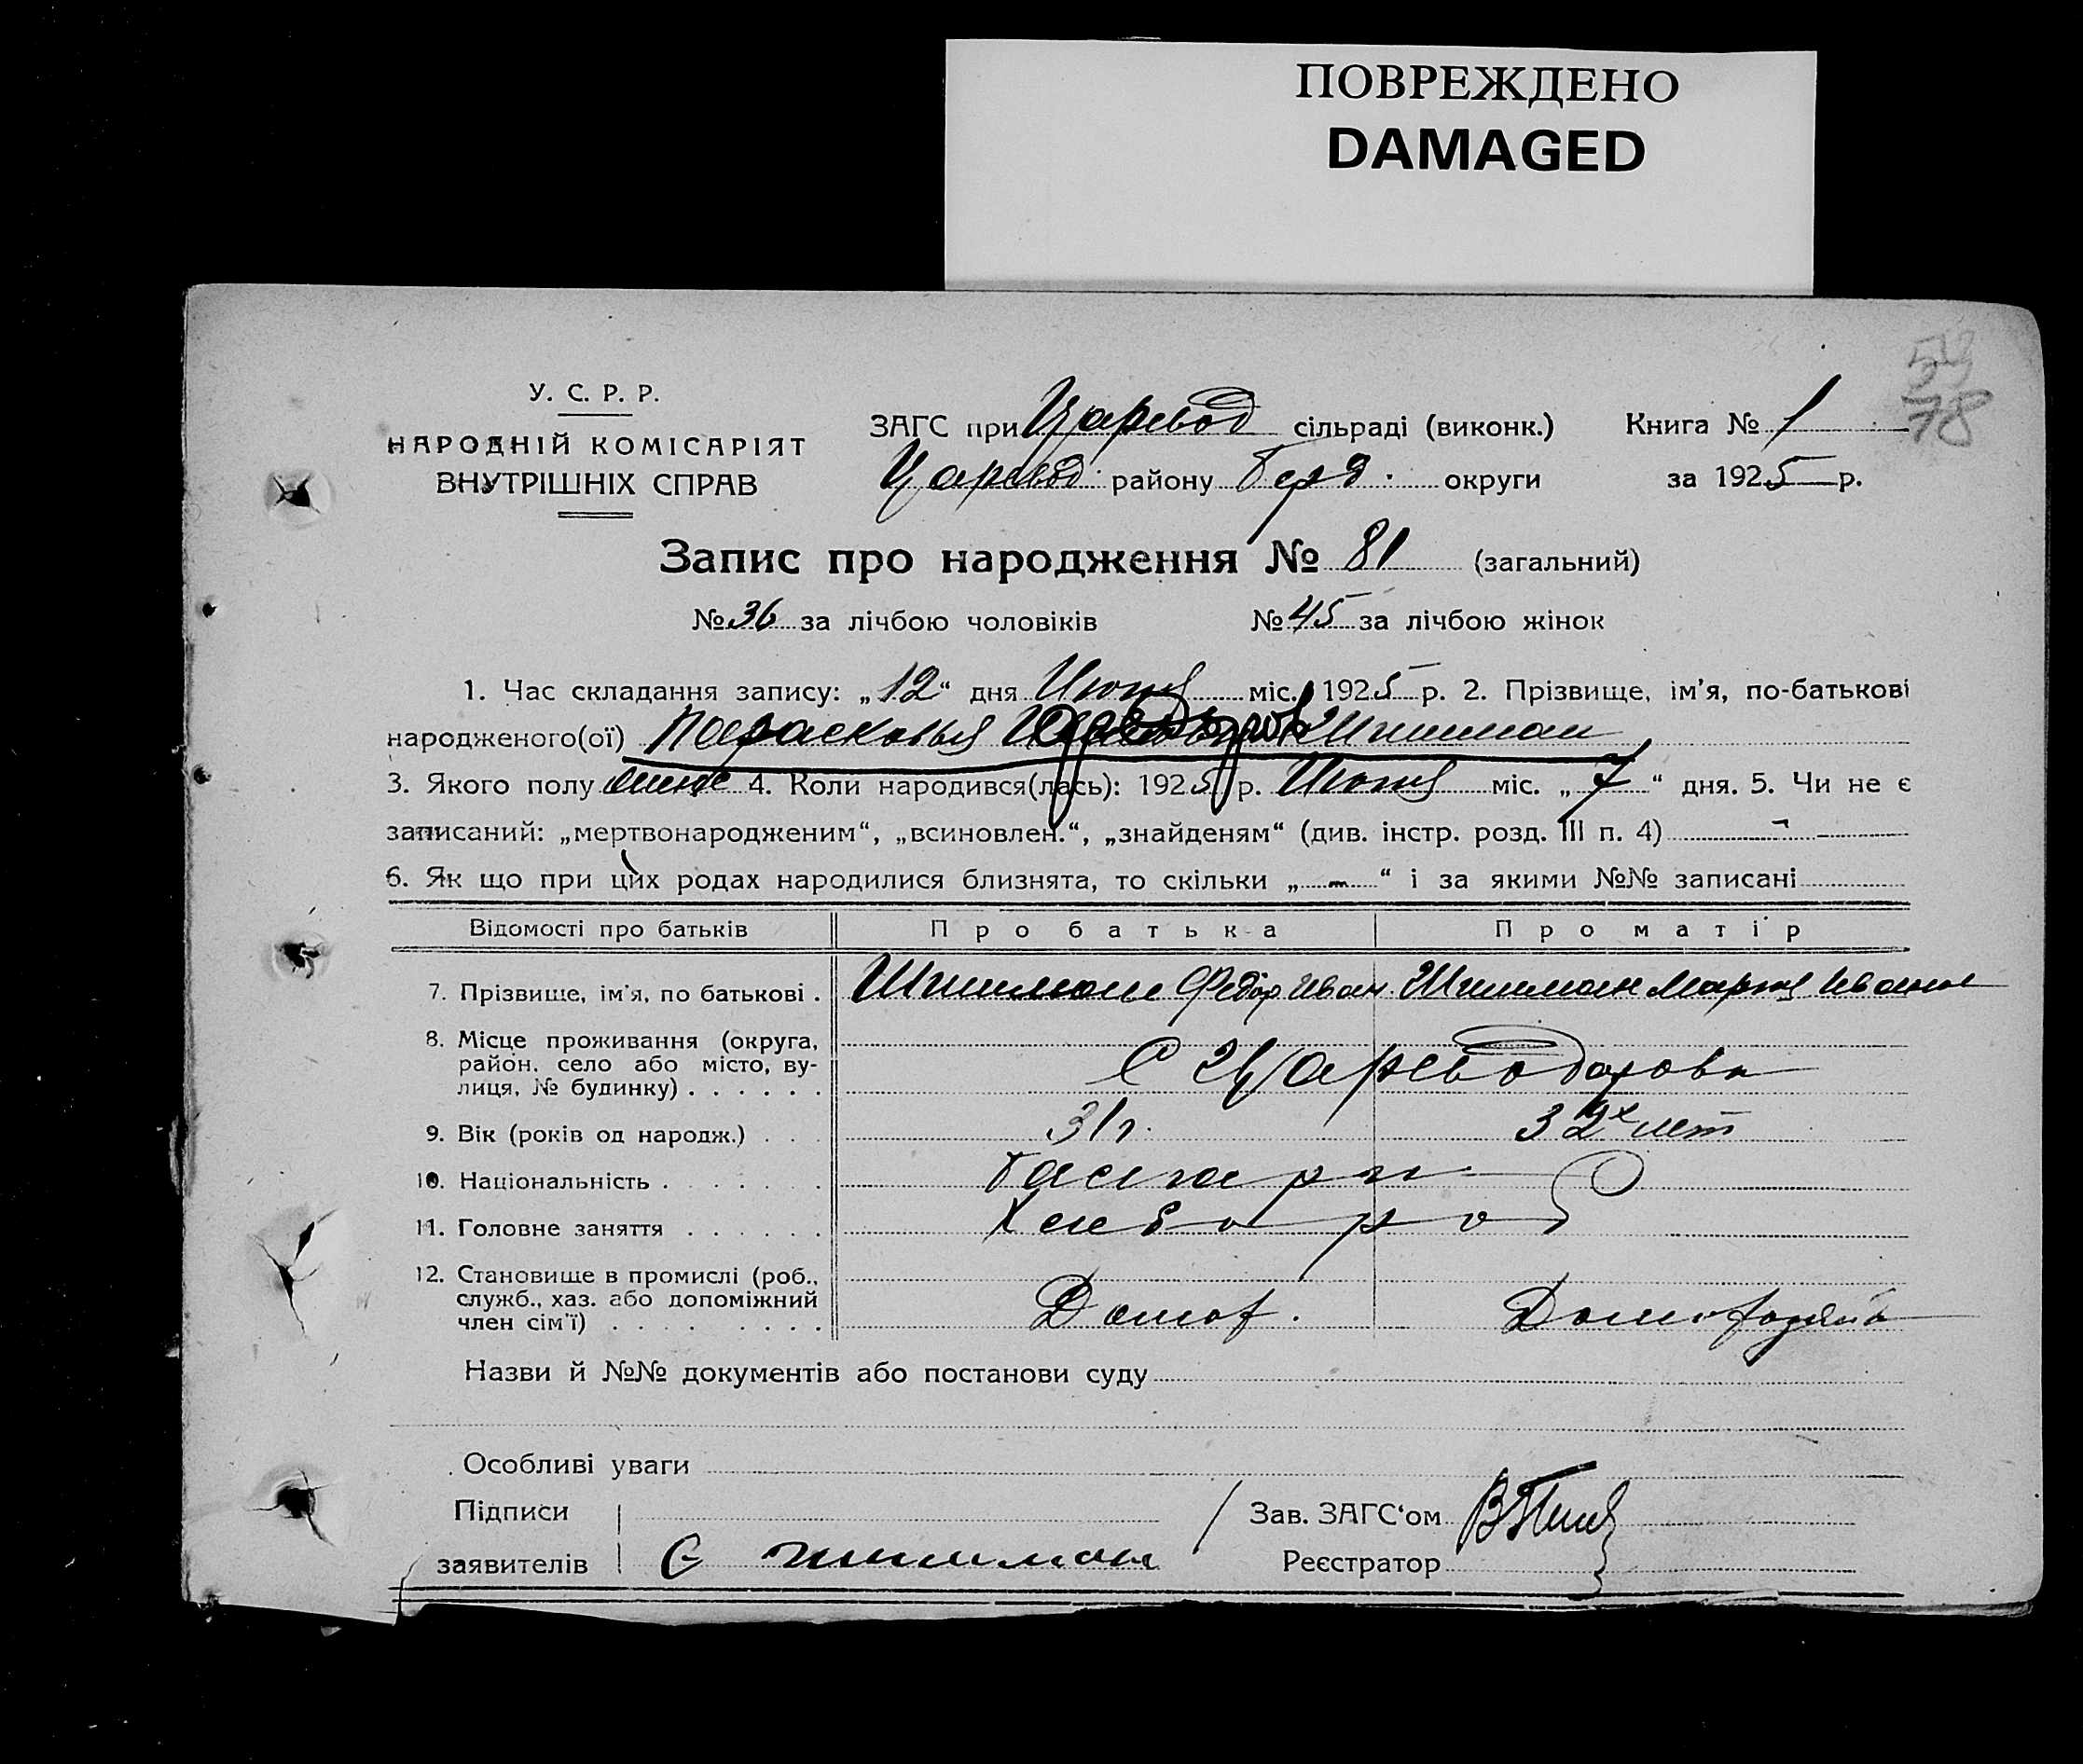 ПОВРЕЖДЕНО
DAMAGED
78
У. С. Р. Р.
НАРОДНІЙ КОМІСАРІЯТ
ВНУТРІШНІХ СПРАВ
ЗАГС при Царевод сільраді (виконк.) Книга № 1
Царевод району Берд. округи за 1925 р.
Запис про народження № 81 (загальний)
№ 36 за лічбою чоловіків № 45 за лічбою жінок
1. Час складання запису: „12“ дня Июня міс. 1925 р. 2. Прізвище, ім’я, по-батькові
народженого(ої) Парасковья Шишман
3. Якого полу женс 4. Коли народився(лась): 1925 р. Июня міс. „7“ дня. 5. Чи не є
записаний: „мертвонародженим“, „всиновлен.“, „знайденям“ (див. інстр. розд. III п. 4) -
6. Як що при цих родах народилися близнята, то скільки „—“ і за якими №№ записані
Відомості про батьків Про батька Про матір
7. Прізвище, ім’я, по батькові . Шишман Федор Иван. Шишман Мария Ивановн
8. Місце проживання (округа,
район. село або місто, ву-
лиця, № будинку) . . . . . . С Цареводаровка
9. Вік (років од народж.) . . . 31 г. 32х лет
10. Національність . . . . . . . Болгары
11. Головне заняття . . . . . . Хлебороб
12. Становище в промислі (роб.,
служб., хаз. або допоміжний
член сім’ї) . . . . . . . . . Домох. Домохозяйка
Назви й №№ документів або постанови суду
Особливі уваги
Підписи Зав. ЗАГС‘ом
заявителів Шишман Реєстратор